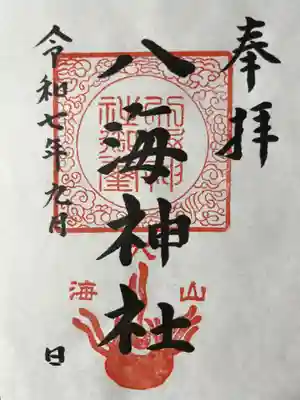 奉拝
八海神社
令和七年九月 日
山
海